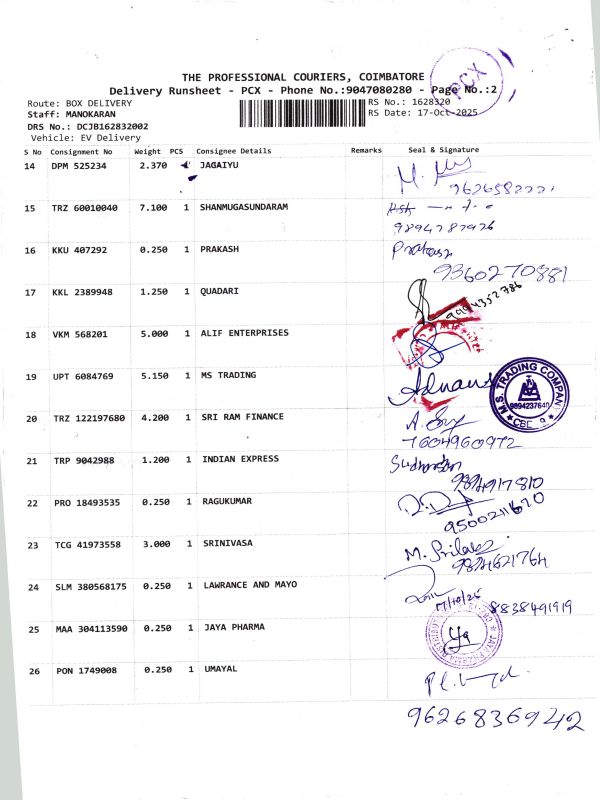 PCX
THE PROFESSIONAL COURIERS, COIMBATORE
Delivery Runsheet - PCX - Phone No.:9047080280 - Page No.:2
Route: BOX DELIVERY
RS No.: 1628320
Staff: MANOKARAN
RS Date: 17-Oct-2025
DRS No.: DCJB162832002
Vehicle: EV Delivery
S No Consignment No Weight PCS Consignee Details Remarks Seal & Signature
14 DPM 525234 2.370 JAGAIYU
15 TRZ 60010040 7.100 1 SHANMUGASUNDARAM
9894787926
16 KKU 407292 0.250 1 PRAKASH Prakash
9360270881
17 KKL 2389948 1.250 1 QUADARI 9994352786
18 VKM 568201 5.000 1 ALIF ENTERPRISES
19 UPT 6084769 5.150 1 MS TRADING Adnan
M.S. TRADING COMPANY
9894237640
20 TRZ 122197680 4.200 1 SRI RAM FINANCE
7604960972
21 TRP 9042988 1.200 1 INDIAN EXPRESS
9894917810
22 PRO 18493535 0.250 1 RAGUKUMAR
9500211670
23 TCG 41973558 3.000 1 SRINIVASA
9824621764
24 SLM 380568175 0.250 1 LAWRANCE AND MAYO
17/10/25 8838491919
25 MAA 304113590 0.250 1 JAYA PHARMA
26 PON 1749008 0.250 1 UMAYAL
9626836942